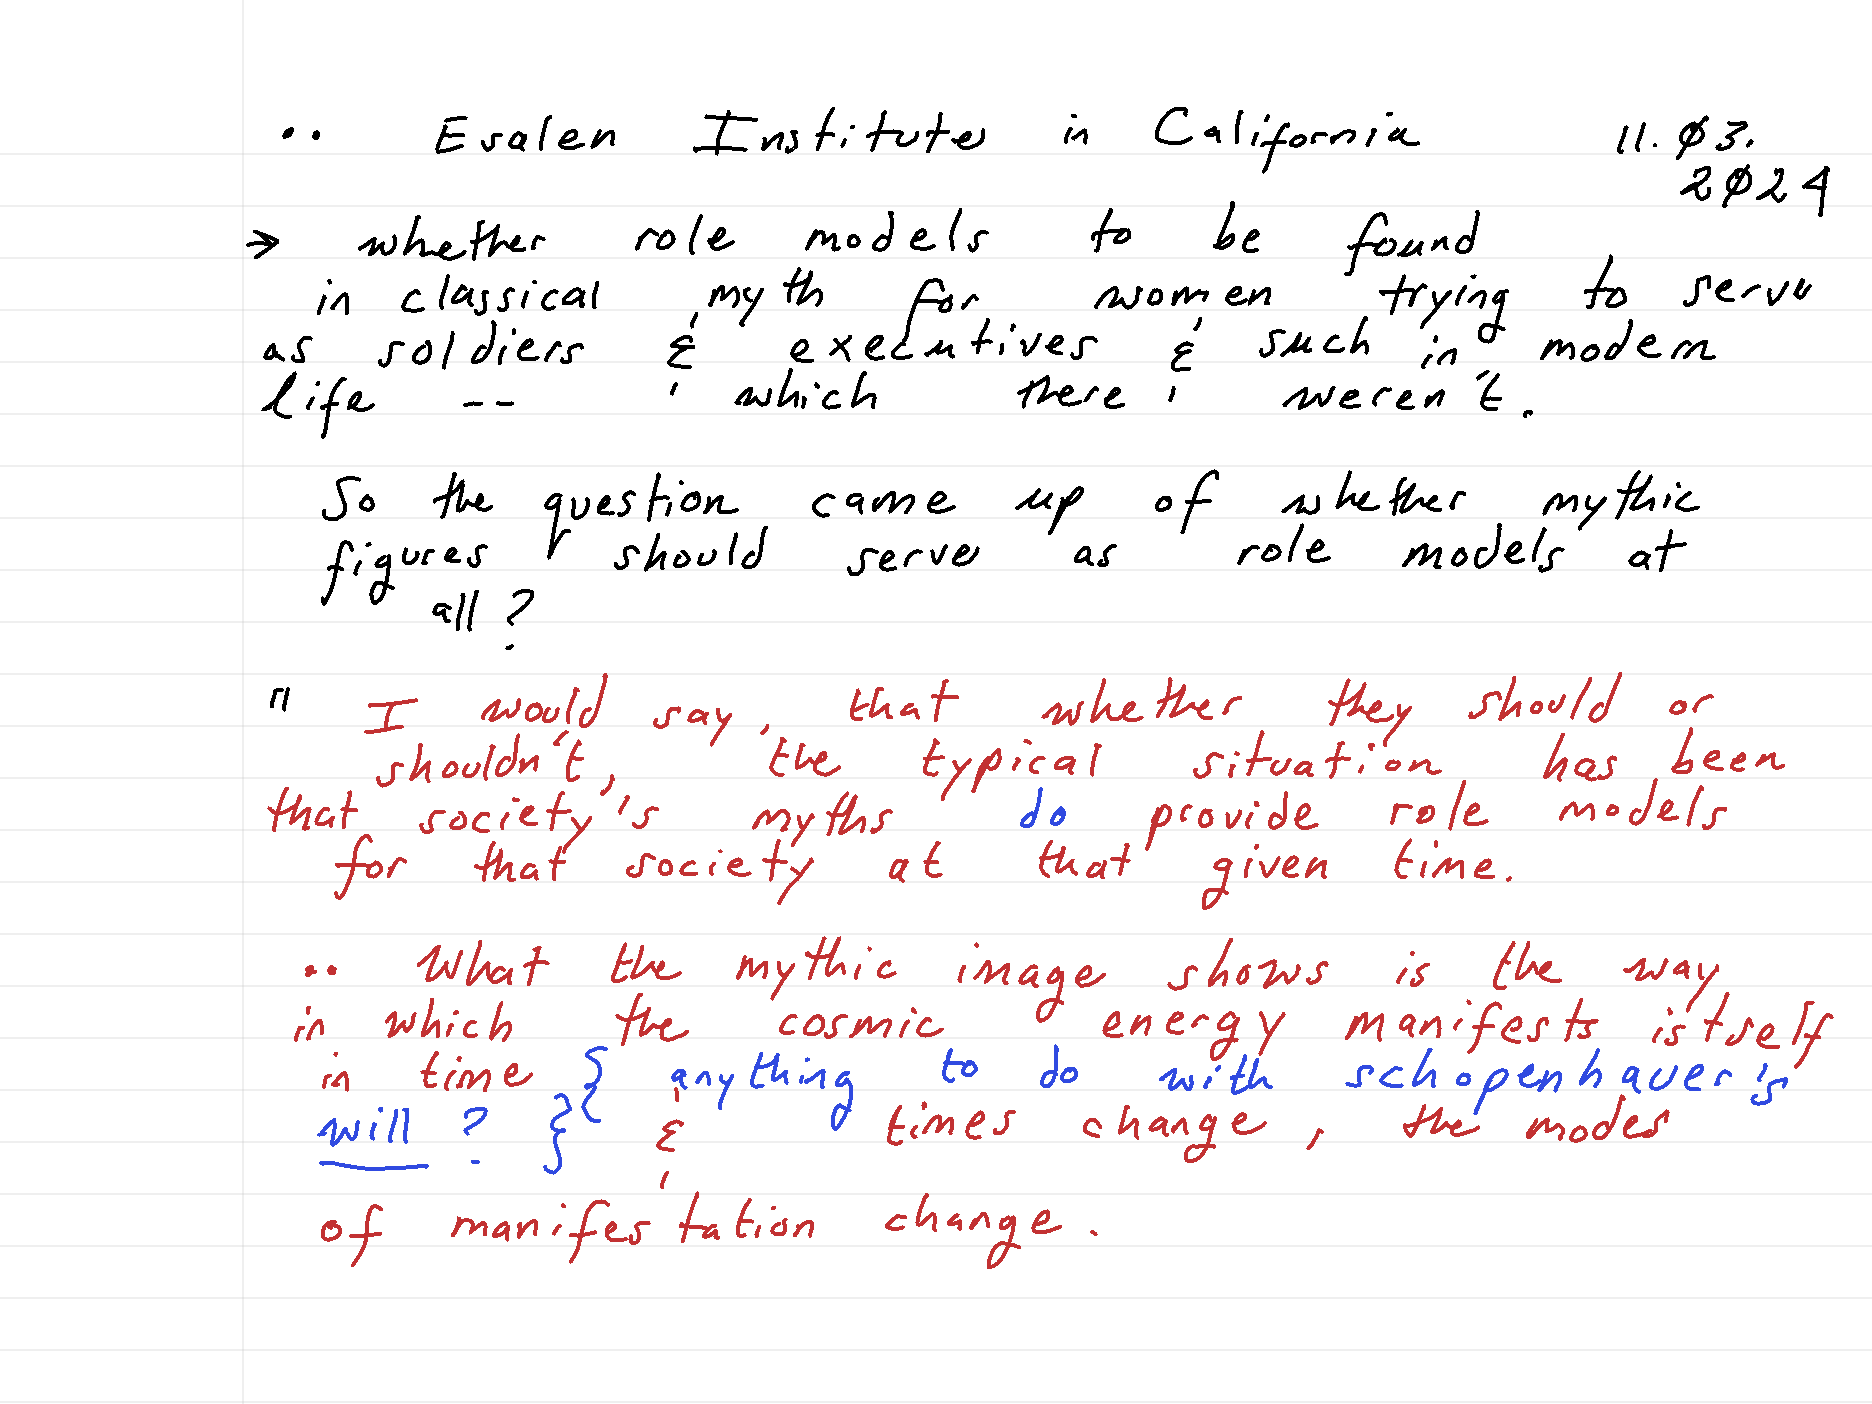 .. Esalen Institute in California 11.Ø3.
2Ø24
→ whether role models to be found
in classical myth for women trying to serve
as soldiers & executives & such in modern
life -- which there weren't.
So the question came up of whether mythic
figures should serve as role models at
all?
" I would say, that whether they should or
shouldn't, the typical situation has been
that society's myths do provide role models
for that society at that given time.
.. What the mythic image shows is the way
in which the cosmic energy manifests istself
in time { anything to do with schopenhauer's
will ? } & times change, the modes
of manifestation change.